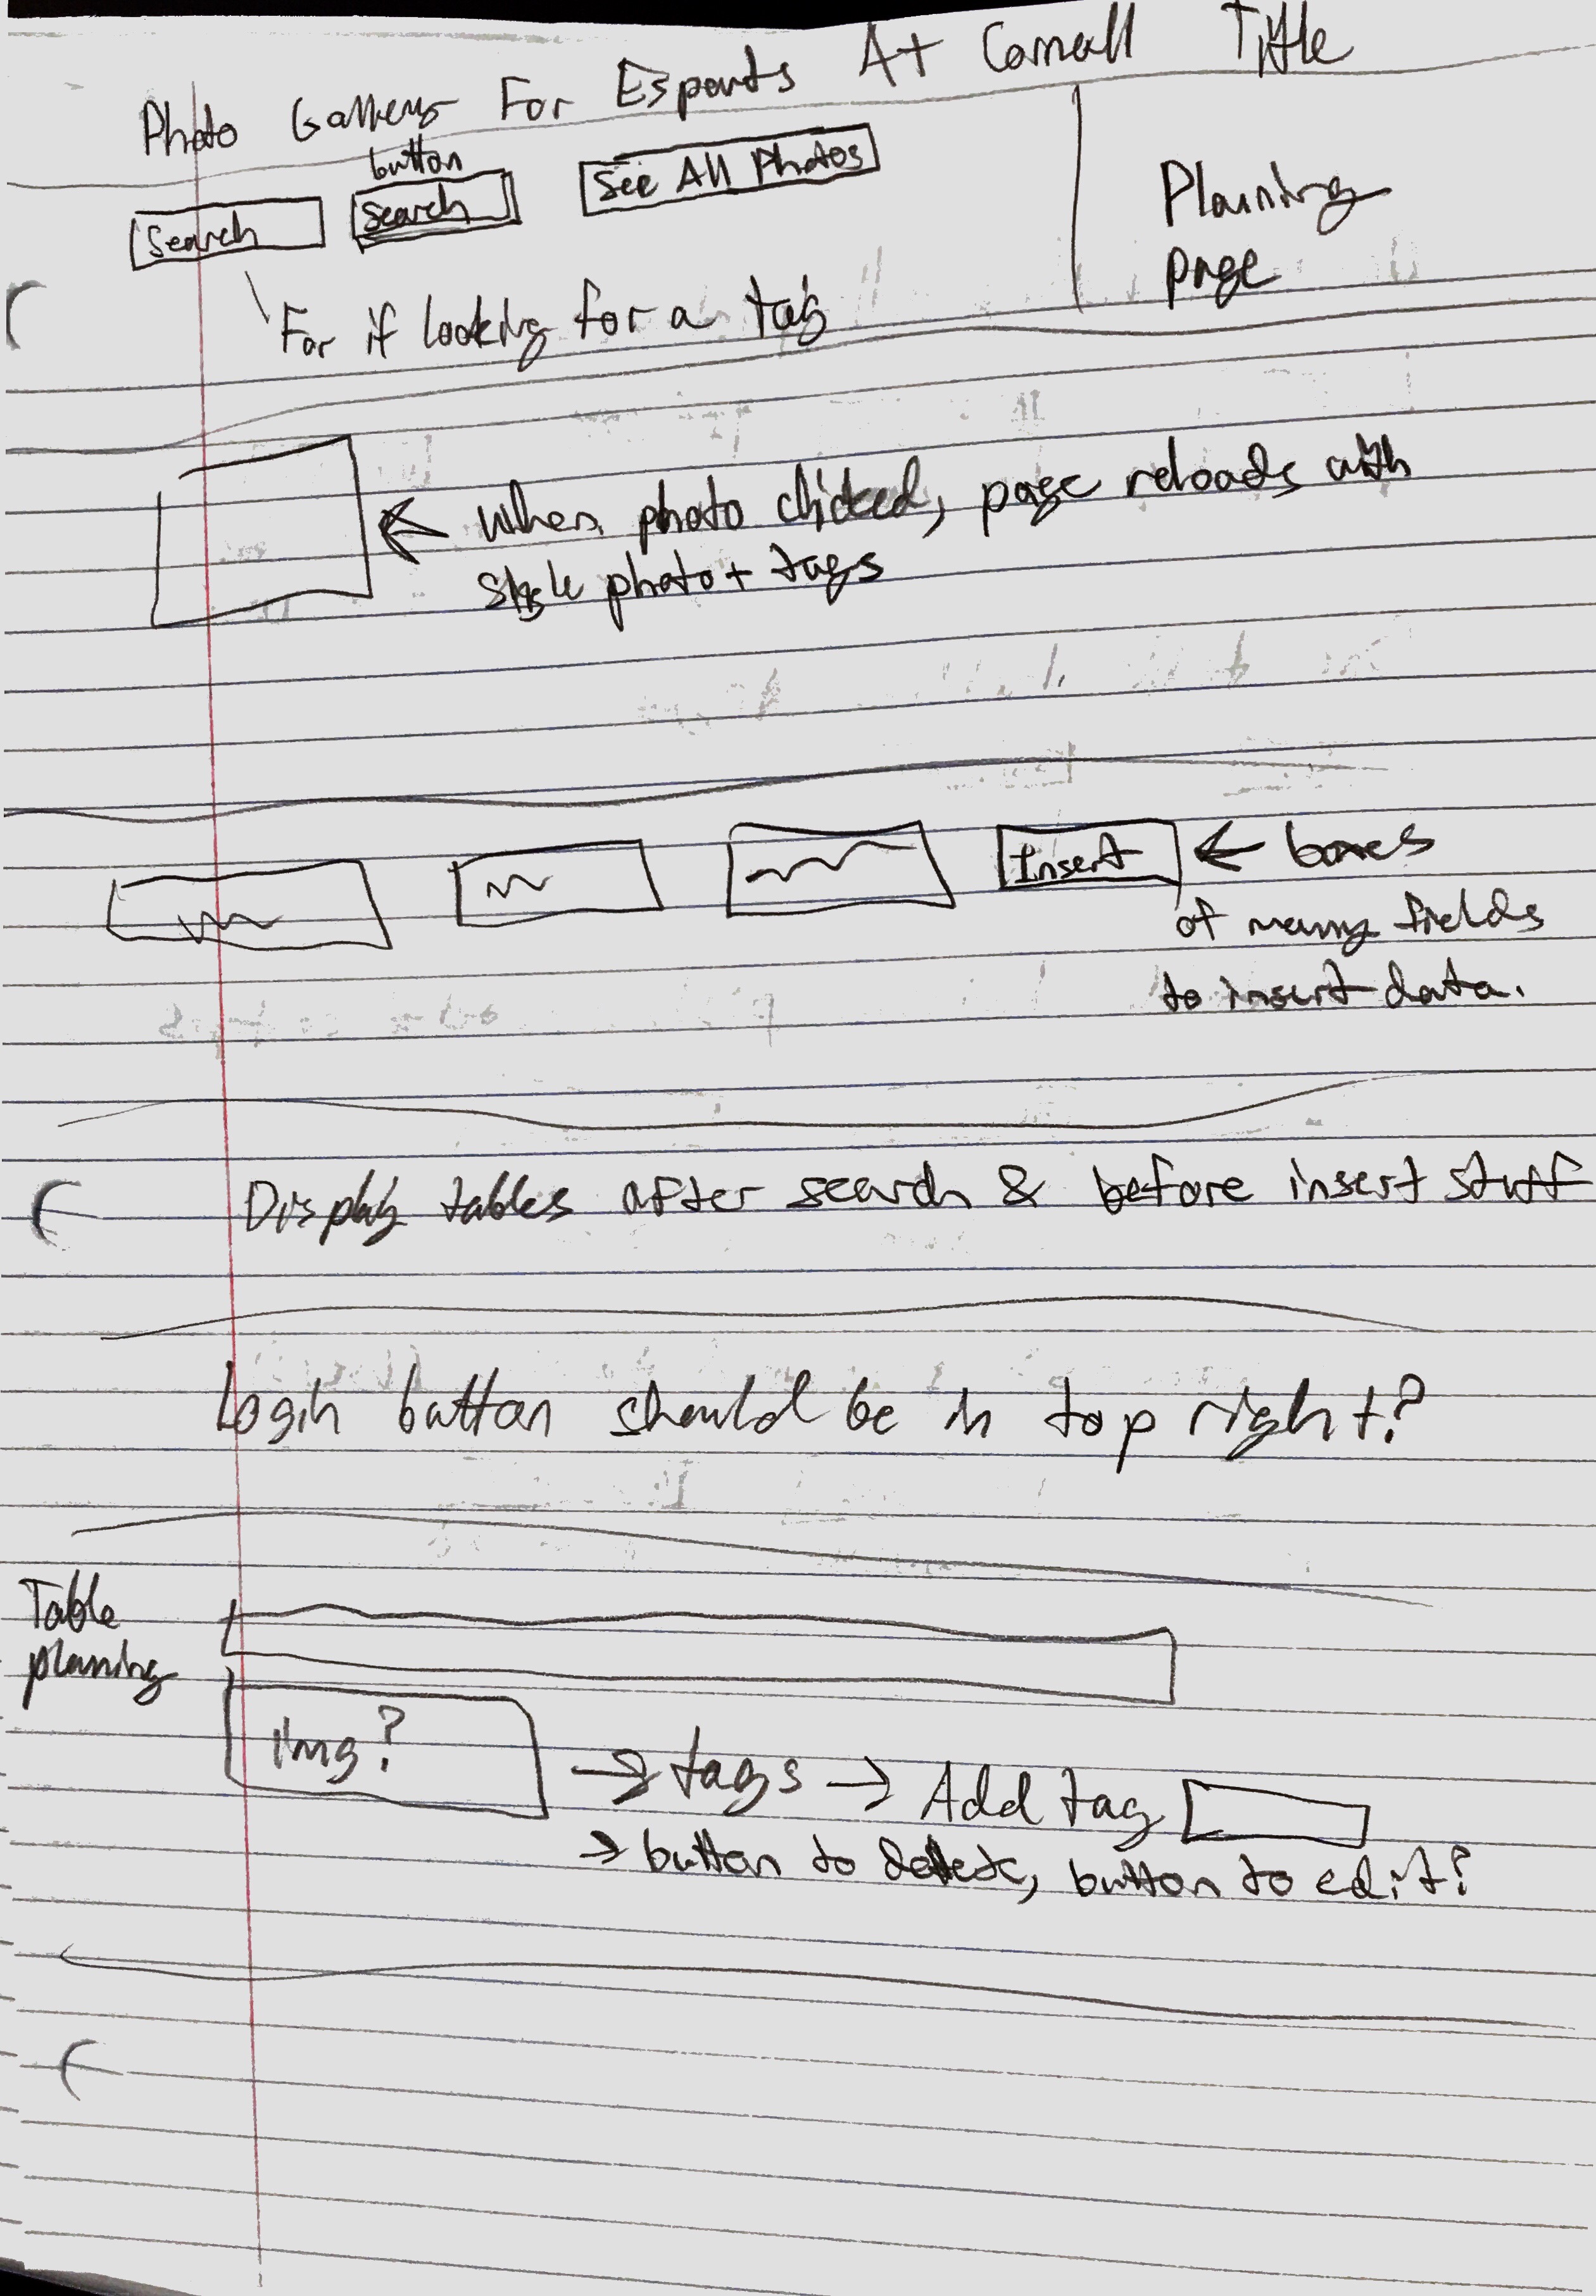 Photo Gallery For Esports At Cornell Title
button
Search
Search
See All Photos
Planning
page
For if looking for a tag
When photo clicked, page reloads with
single photo + tags
Insert
← boxes
of many fields
to insert data.
Display tables after search & before insert stuff
Login button should be in top right?
Table
planing
img?
→ tags → Add tag
→ button to delete, button to edit?